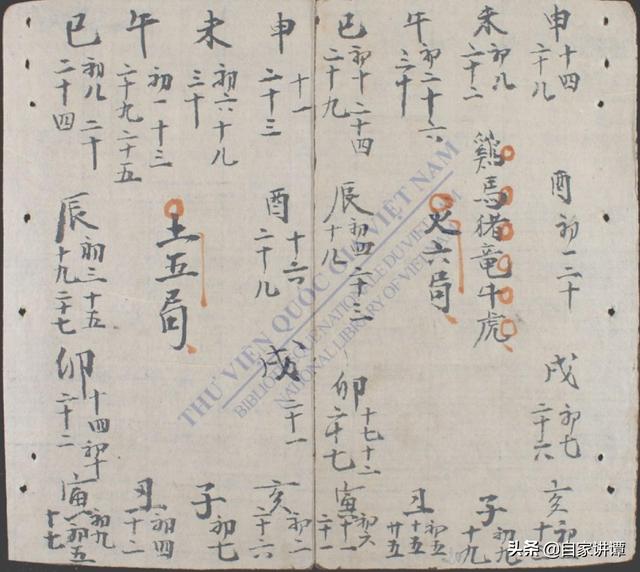 申
十四
二十八
未
初八
二十二
午
初二十六
三十
巳
初十二十四
二十九
雞馬猪竜牛虎
酉
初一二十
火六局
辰
初四二十三
十八
戌
初七
二十六
卯
十七十二
二十七
亥
初
子
初九
十九
丑
初五
十五
廿五
寅
初六
二十一
申
十一
二十三
未
初六十八
三十
午
初一十三
二十九二十五
巳
初八二十
二十四
酉
十六
二十八
土五局
辰
初三十五
十九二十七
戌
二十一
卯
十四初十
二十二
亥
初二
二十六
子
初七
丑
初四
二十一
寅
初九
初五
十七
THƯ VIỆN QUỐC GIA VIỆT NAM
BIBLIOTHÈQUE NATIONALE DU VIETNAM
NATIONAL LIBRARY OF VIETNAM
头条 @自家讲谭